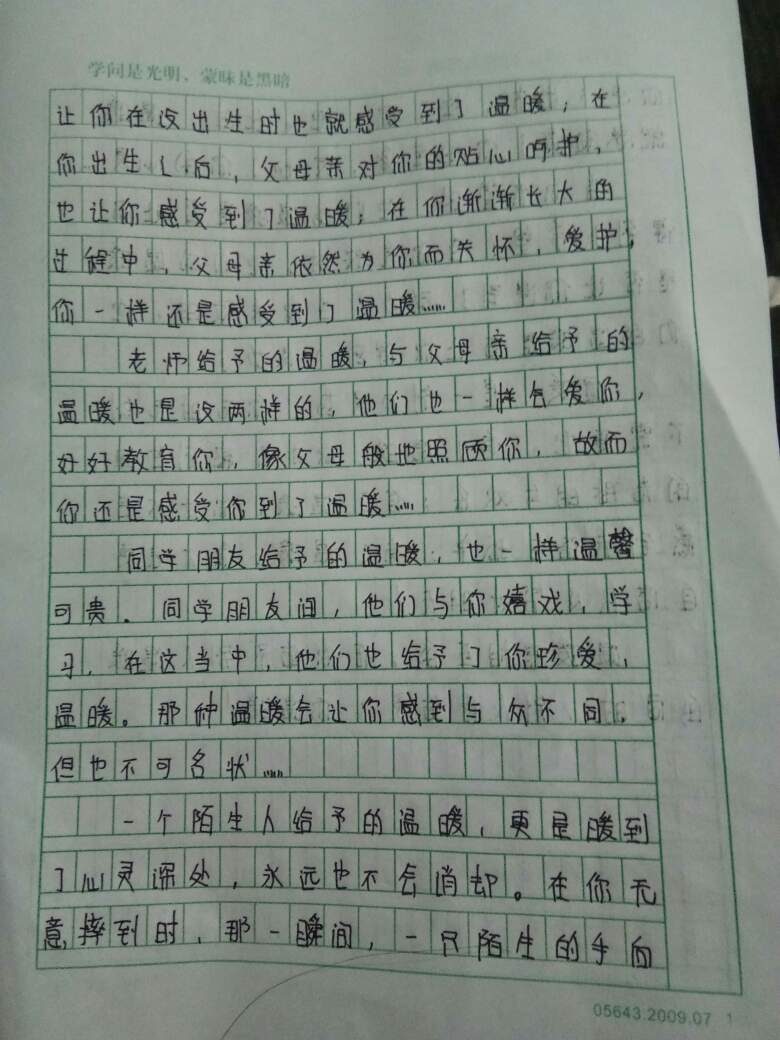 学问是光明、蒙昧是黑暗
让你在没出生时也就感受到了温暖；在
你出生以后，父母亲对你的贴心呵护，
也让你感受到了温暖；在你渐渐长大的
过程中，父母亲依然为你而关怀、爱护，
你一样还是感受到了温暖……
老师给予的温暖，与父母亲给予的
温暖也是没两样的，他们也一样会爱你，
好好教育你，像父母般地照顾你，故而
你还是感受你到了温暖……
同学朋友给予的温暖，也一样温馨
可贵。同学朋友间，他们与你嬉戏，学
习，在这当中，他们也给予了你珍爱，
温暖。那种温暖会让你感到与众不同，
但也不可名状……
一个陌生人给予的温暖，更是暖到
了心灵深处，永远也不会消却。在你无
意摔到时，那一瞬间，一只陌生的手向
05643.2009.07 1